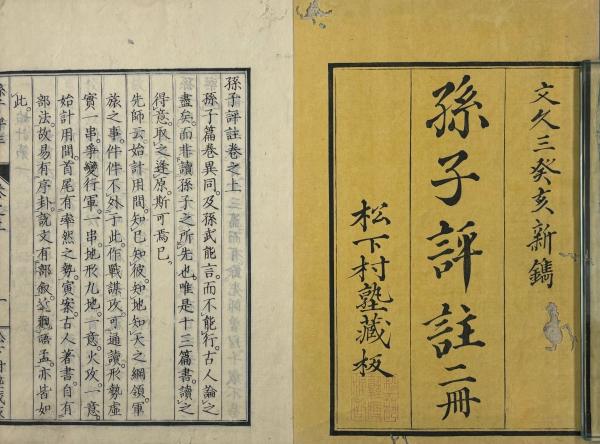 文久三癸亥新鐫
孫子評註二冊
松下村塾藏板
孫子評註卷之上
孫子篇卷異同及孫武能言而不能行古人論之
盡矣而非讀孫子之所先也唯是十三篇書讀之
得意取之逢原斯可焉已
先師云始計用間知己知彼知地知天之綱領軍
旅之事件件不外于此作戰謀攻可通讀形勢虛
實一串爭變行軍一串地形九地一意火攻一意
始計用間首尾有率然之勢寅案古人著書自有
部法故易有序卦說文有部敘並觀語孟亦皆如
此